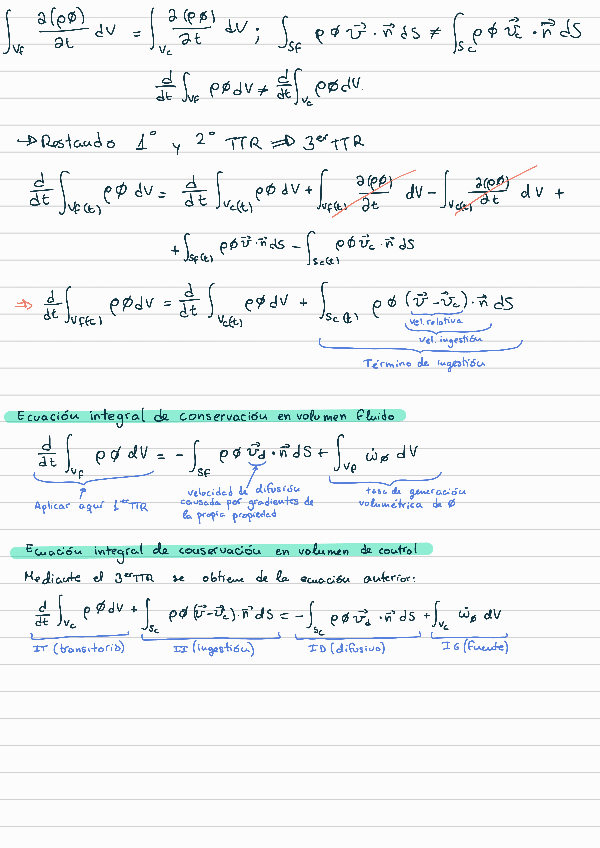 ∫_Vf ∂(ρφ)/∂t dV = ∫_Vc ∂(ρφ)/∂t dV ; ∫_Sf ρφ v⃗ · n⃗ dS ≠ ∫_Sc ρφ v⃗c · n⃗ dS
d/dt ∫_Vf ρφ dV ≠ d/dt ∫_Vc ρφ dV.
→ Restando 1° y 2° TTR ⇒ 3er TTR
d/dt ∫_Vf(t) ρφ dV = d/dt ∫_Vc(t) ρφ dV + ∫_Vf(t) ∂(ρφ)/∂t dV − ∫_Vc(t) ∂(ρφ)/∂t dV +
+ ∫_Sf(t) ρφ v⃗ · n⃗ dS − ∫_Sc(t) ρφ v⃗c · n⃗ dS
⇒ d/dt ∫_Vf(t) ρφ dV = d/dt ∫_Vc(t) ρφ dV + ∫_Sc(t) ρφ (v⃗ − v⃗c) · n⃗ dS
vel. relativa
vel. ingestión
Término de ingestión
Ecuación integral de conservación en volumen fluido
d/dt ∫_Vf ρφ dV = − ∫_Sf ρφ v⃗d · n⃗ dS + ∫_Vf ω̇φ dV
Aplicar aquí 1er TTR
velocidad de difusión
causada por gradientes de
la propia propiedad
tasa de generación
volumétrica de φ
Ecuación integral de conservación en volumen de control
Mediante el 3er TTR se obtiene de la ecuación anterior:
d/dt ∫_Vc ρφ dV + ∫_Sc ρφ (v⃗ − v⃗c) · n⃗ dS = − ∫_Sc ρφ v⃗d · n⃗ dS + ∫_Vc ω̇φ dV
IT (transitorio) II (ingestión) ID (difusivo) IG (fuente)